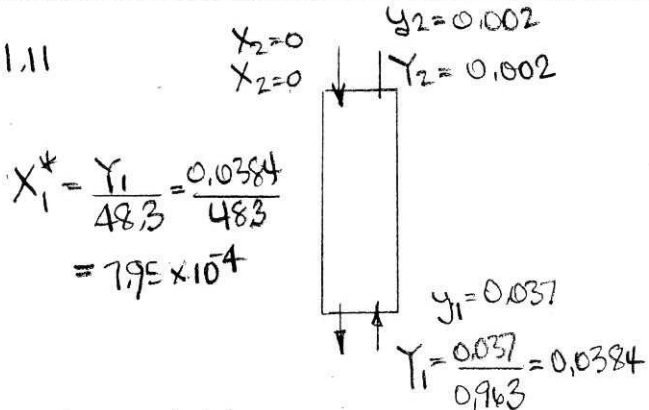 1.11
x₂=0
X₂=0
y₂=0.002
Y₂=0.002
X₁* = Y₁/48,3 = 0,0384/48,3
= 7,95 × 10⁻⁴
y₁=0.037
Y₁ = 0.037/0,963 = 0,0384